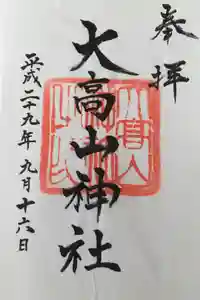 奉拝
大高山神社
平成二十九年 九月十六日